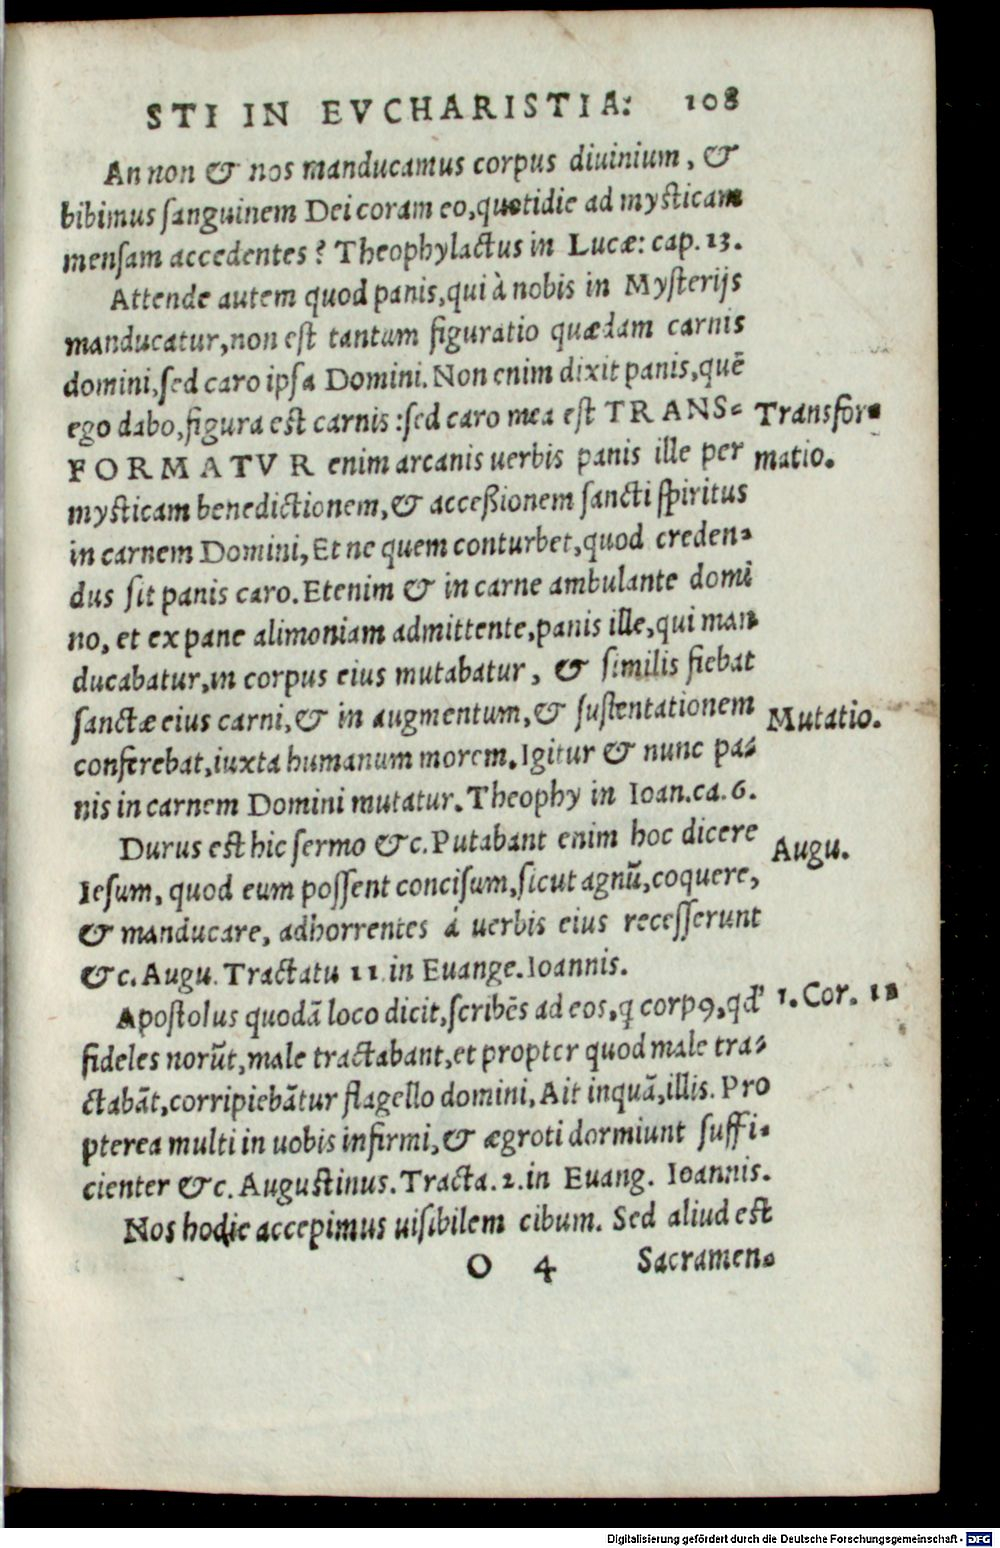 STI IN EVCHARISTIA: 108
An non & nos manducamus corpus diuinium, &
bibimus sanguinem Dei coram eo, quotidie ad mysticam
mensam accedentes? Theophylactus in Lucæ: cap. 13.
Attende autem quod panis, qui à nobis in Mysterijs
manducatur, non est tantum figuratio quædam carnis
domini, sed caro ipsa Domini. Non enim dixit panis, quẽ
ego dabo, figura est carnis: sed caro mea est TRANS-
FORMATVR enim arcanis uerbis panis ille per
mysticam benedictionem, & acceßionem sancti spiritus
in carnem Domini, Et ne quem conturbet, quod creden-
dus sit panis caro. Etenim & in carne ambulante domi
no, et ex pane alimoniam admittente, panis ille, qui man-
ducabatur, in corpus eius mutabatur, & similis fiebat
sanctæ eius carni, & in augmentum, & sustentationem
conferebat, iuxta humanum morem. Igitur & nunc pa-
nis in carnem Domini mutatur. Theophy in Ioan. ca. 6.
Durus est hic sermo &c. Putabant enim hoc dicere
Iesum, quod eum possent concisum, sicut agnũ, coquere,
& manducare, adhorrentes á uerbis eius recesserunt
&c. Augu. Tractatu 11 in Euange. Ioannis.
Apostolus quodã loco dicit, scribẽs ad eos, q corpꝰ, qd'
fideles norũt, male tractabant, et propter quod male tra-
ctabãt, corripiebãtur flagello domini, Ait inquã, illis. Pro
pterea multi in uobis infirmi, & ægroti dormiunt suffi-
cienter &c. Augustinus. Tracta. 2. in Euang. Ioannis.
Nos hodie accepimus uisibilem cibum. Sed aliud est
O 4 Sacramen-
Transfor-
matio.
Mutatio.
Augu.
1. Cor. 11
Digitalisierung gefördert durch die Deutsche Forschungsgemeinschaft - DFG